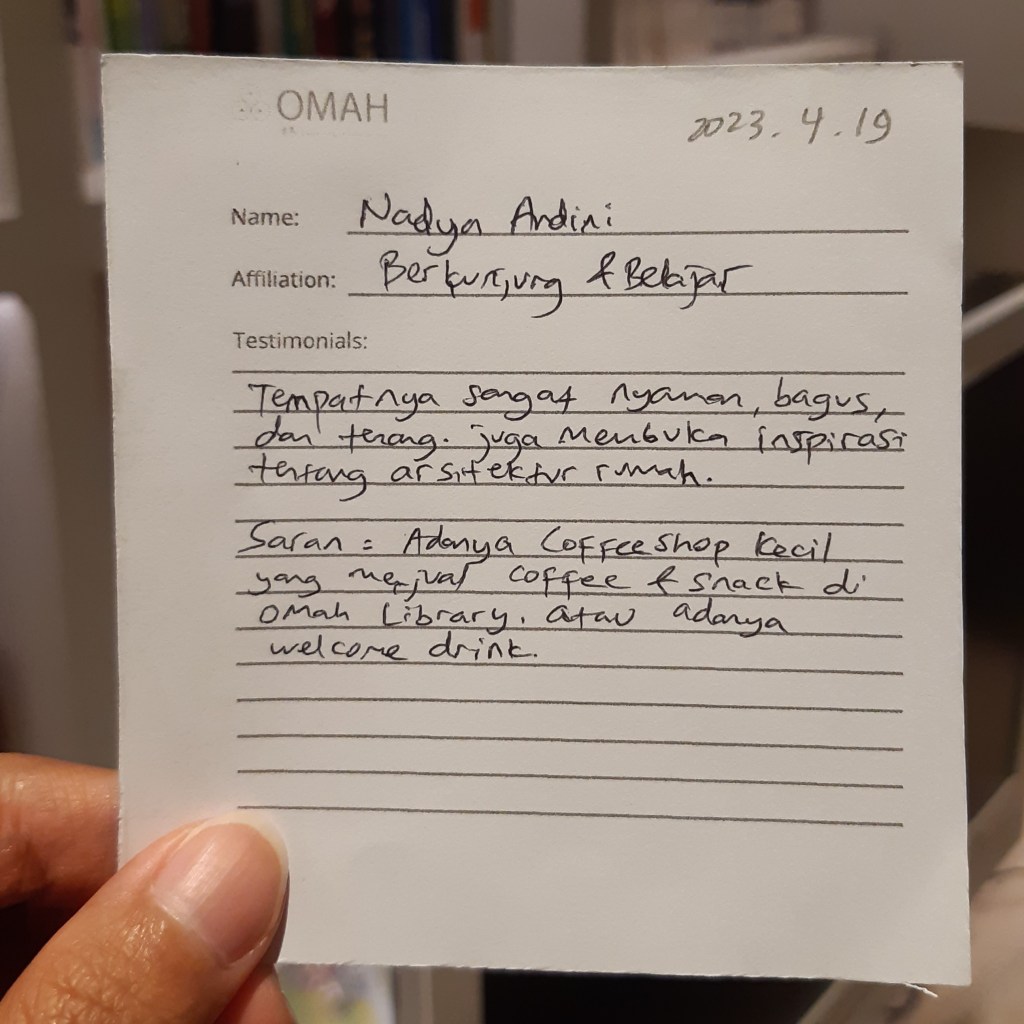 OMAH
2023.4.19
Name: Nadya Andini
Affiliation: Berkunjung & Belajar
Testimonials:
Tempatnya sangat nyaman, bagus,
dan tenang. juga membuka inspirasi
tentang arsitektur rumah.
Saran = Adanya Coffeeshop kecil
yang menjual coffee & snack di
omah Library. atau adanya
welcome drink.